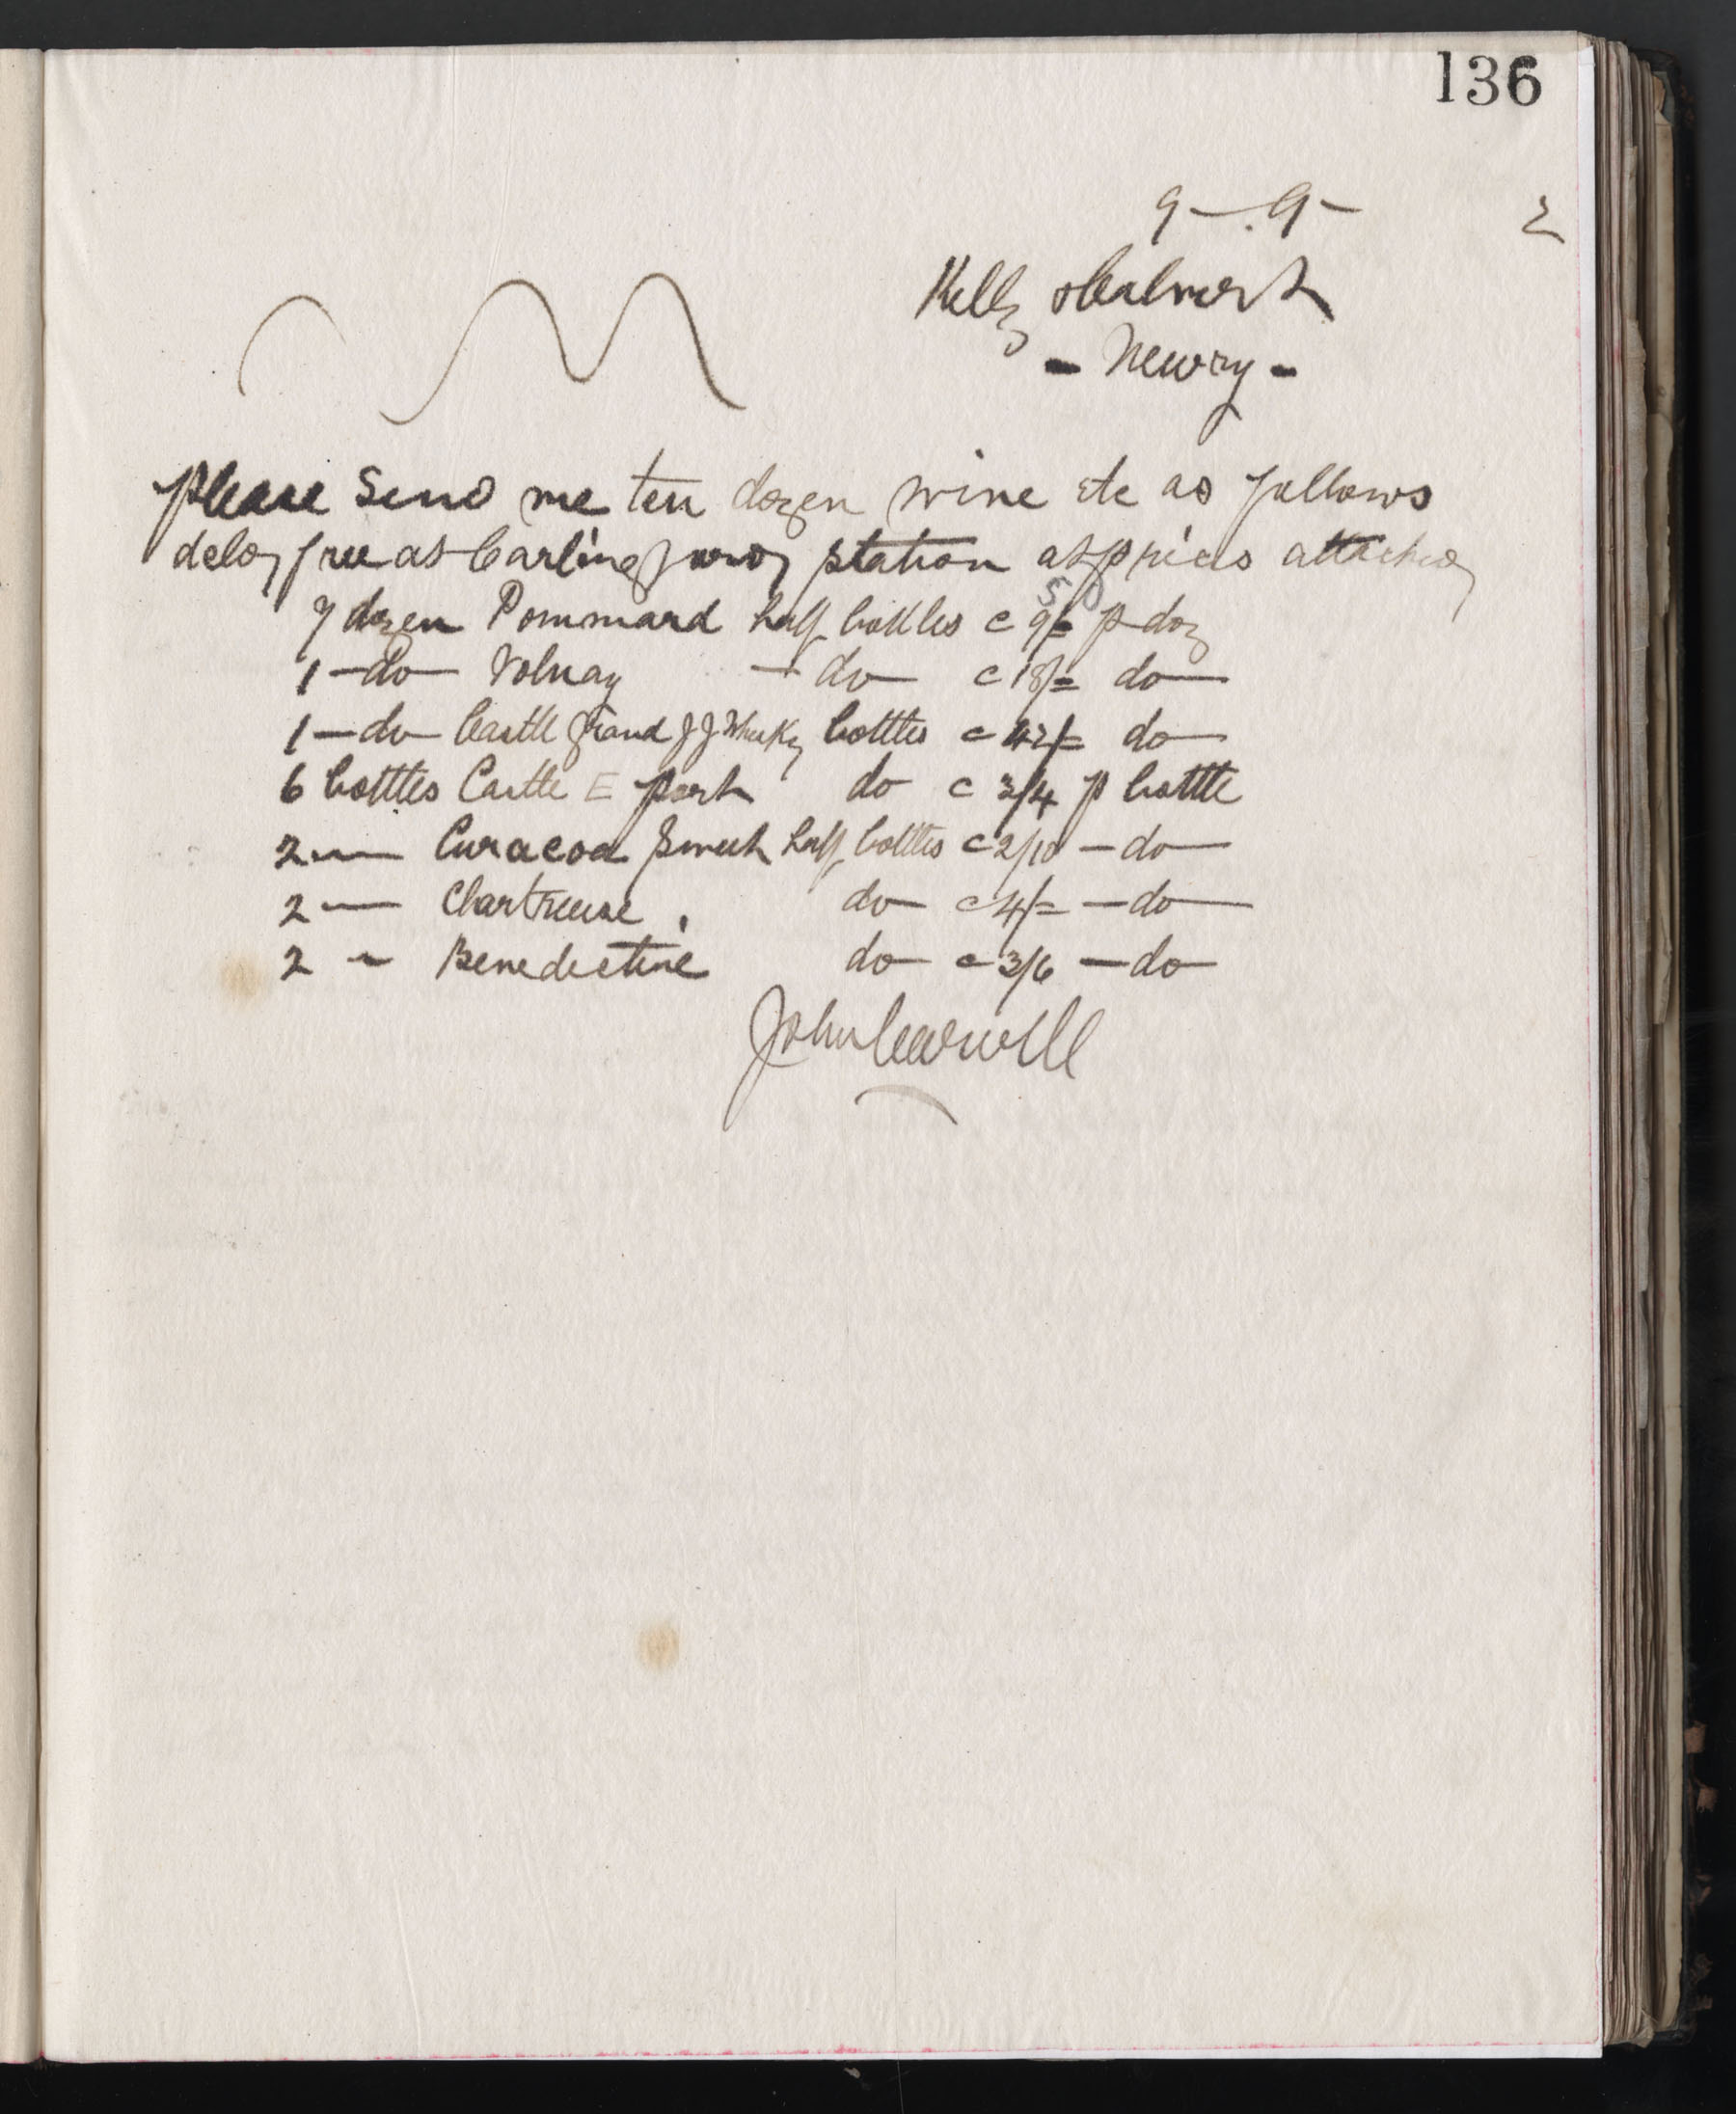 136
9 – . 9 – 2
Kelly & Calvert
– Newry –
Please send me ten dozen wine etc as follows
deld free at Carlingford station at prices attached
7 dozen Pommard half bottles c 9/= p doz
1 – do – Volnay – do – c 18/= do –
1 – do – Castle Grand JJ Whisky bottles c 42/= do –
6 bottles Castle E Port do c 3/4 p bottle
2 — Curacoa Sweet half bottles c 2/10 – do –
2 — Chartreuse do – c 4/= – do –
2 – Benedictine do – c 3/6 – do –
John